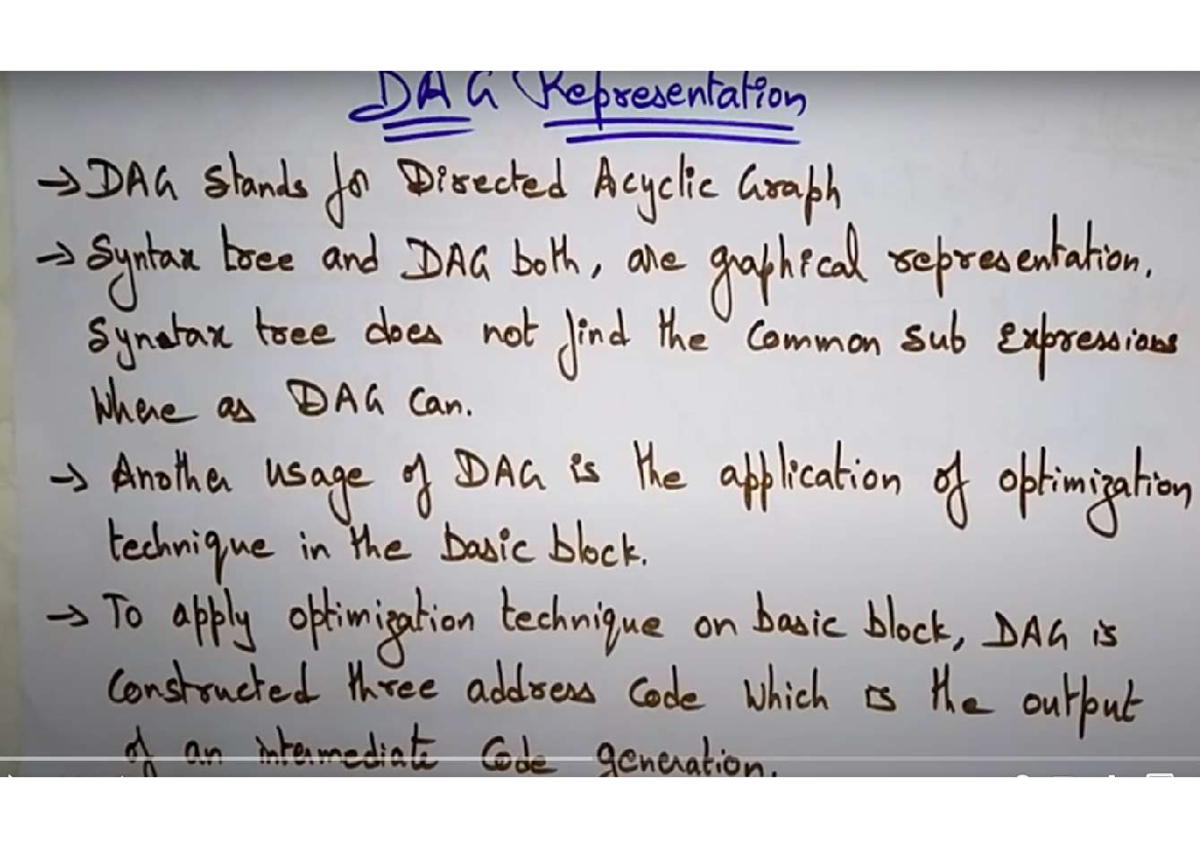 DAG Representation
→ DAG stands for Directed Acyclic Graph
→ Syntax tree and DAG both, are graphical representation.
Synatax tree does not find the common sub expressions
where as DAG can.
→ Another usage of DAG is the application of optimization
technique in the basic block.
→ To apply optimization technique on basic block, DAG is
constructed three address code which is the output
of an intermediate code generation.